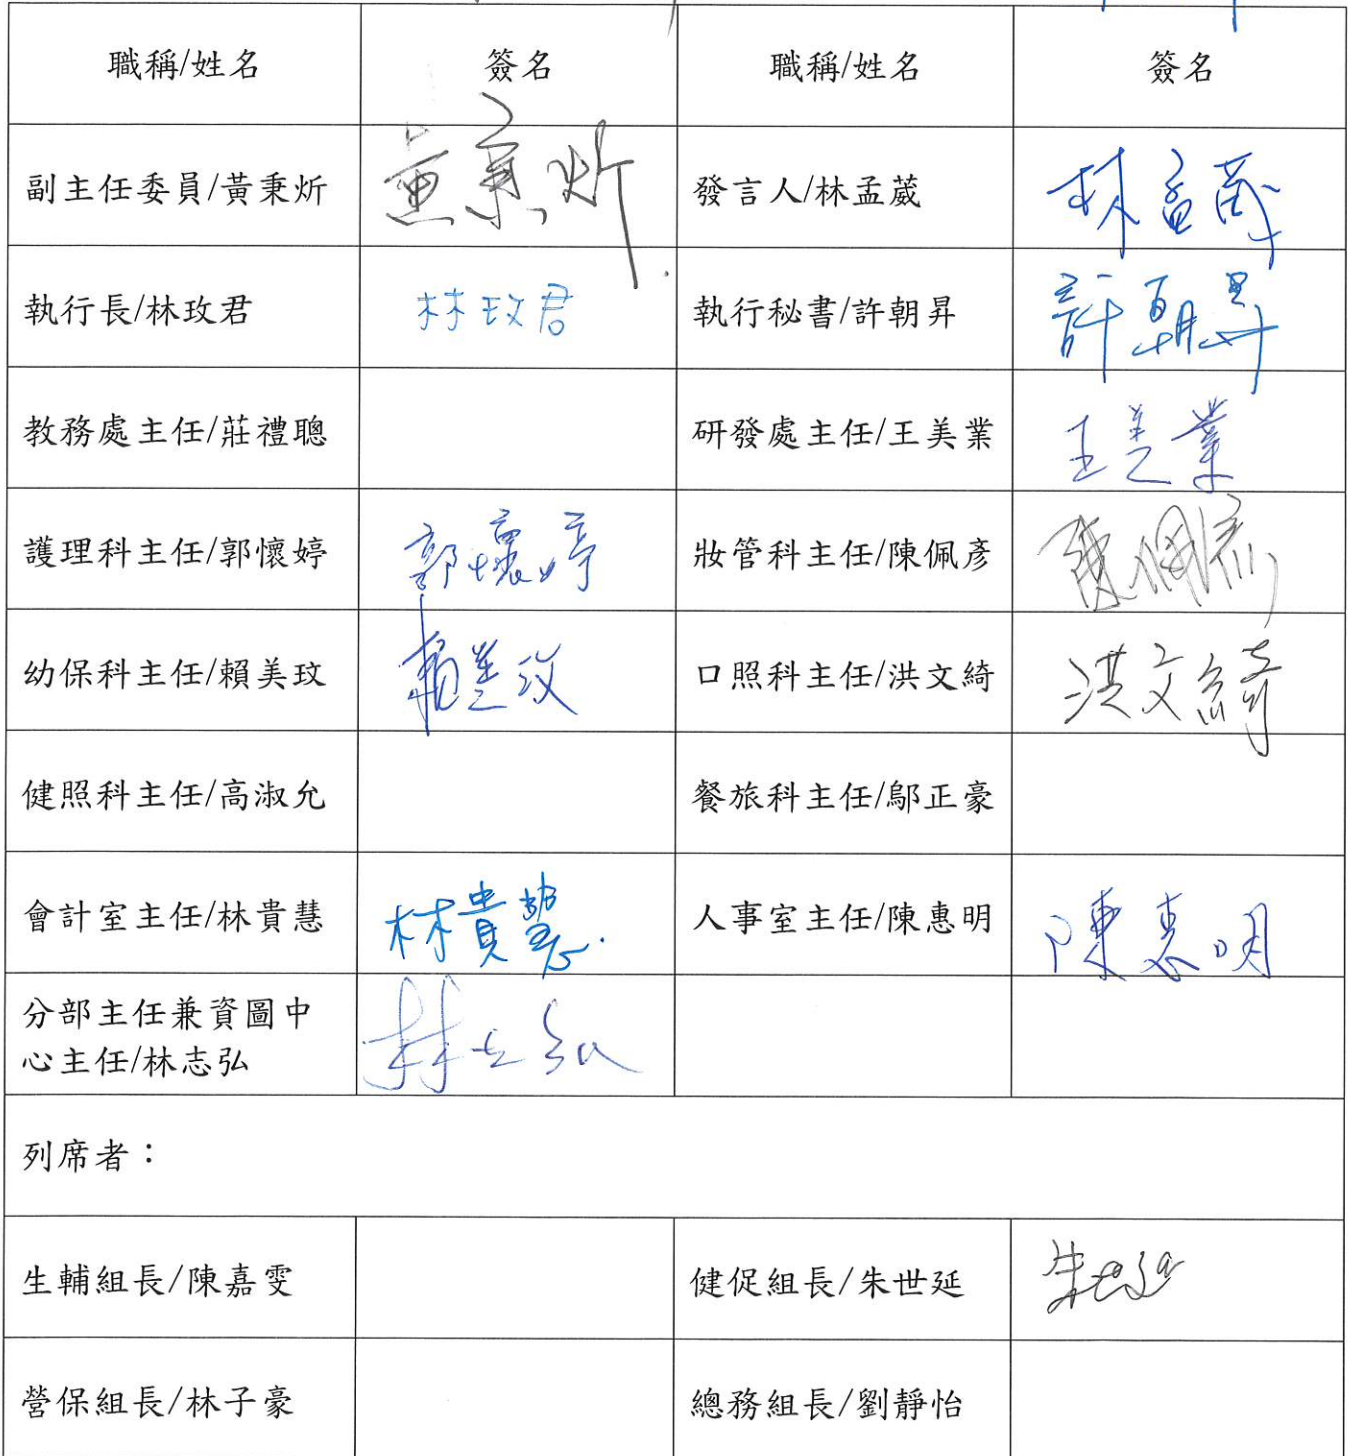 職稱/姓名 簽名 職稱/姓名 簽名
副主任委員/黃秉炘 黃秉炘 發言人/林孟葳 林孟葳
執行長/林玫君 林玫君 執行秘書/許朝昇 許朝昇
教務處主任/莊禮聰 研發處主任/王美業 王美業
護理科主任/郭懷婷 郭懷婷 妝管科主任/陳佩彥 陳佩彥
幼保科主任/賴美玟 賴美玟 口照科主任/洪文綺 洪文綺
健照科主任/高淑允 餐旅科主任/鄔正豪
會計室主任/林貴慧 林貴慧 人事室主任/陳惠明 陳惠明
分部主任兼資圖中
心主任/林志弘 林志弘
列席者：
生輔組長/陳嘉雯 健促組長/朱世延 朱世延
營保組長/林子豪 總務組長/劉靜怡